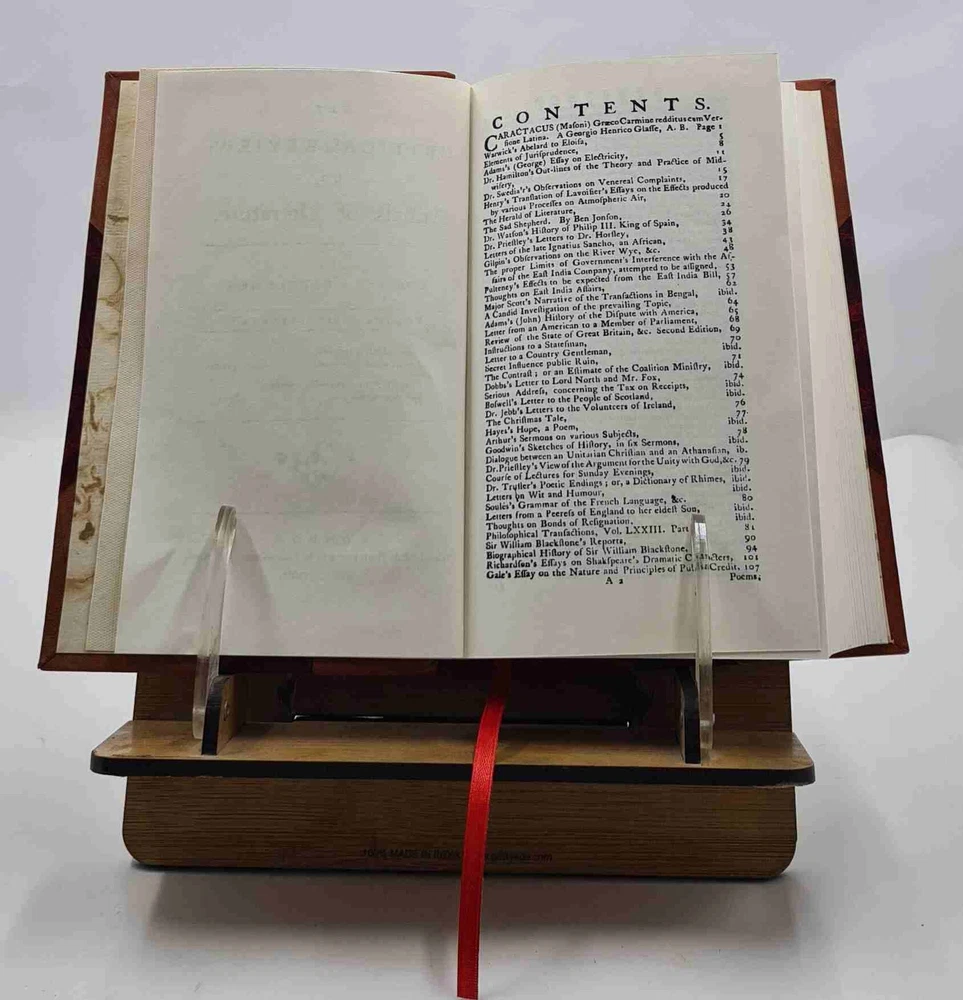 CONTENTS.
CARACTACUS (Maſoni) Græco Carmine redditus cum Ver-
ſione Latina. A Georgio Henrico Glaſſe, A. B. Page 1
Warwick's Abelard to Eloiſa, 5
Elements of Juriſprudence, 8
Adams's (George) Eſſay on Electricity, 11
Dr. Hamilton's Out-lines of the Theory and Practice of Mid-
wifery, 15
Dr. Swediar's Obſervations on Venereal Complaints, 17
Henry's Tranſlation of Lavoiſier's Eſſays on the Effects produced
by various Proceſſes on Atmoſpheric Air, 20
The Herald of Literature, 24
The Sad Shepherd. By Ben Jonſon, 26
Dr. Watſon's Hiſtory of Philip III. King of Spain, 34
Dr. Prieſtley's Letters to Dr. Horſley, 38
Letters of the late Ignatius Sancho, an African, 43
Gilpin's Obſervations on the River Wye, &c. 48
The proper Limits of Government's Interference with the Af-
fairs of the Eaſt India Company, attempted to be aſſigned, 53
Pulteney's Effects to be expected from the Eaſt India Bill, 57
Thoughts on Eaſt India Affairs, 62
Major Scott's Narrative of the Tranſactions in Bengal, ibid.
A Candid Inveſtigation of the prevailing Topic, 64
Adams's (John) Hiſtory of the Diſpute with America, 65
Letter from an American to a Member of Parliament, 68
Review of the State of Great Britain, &c. Second Edition, 69
Inſtructions to a Stateſman, 70
Letter to a Country Gentleman, ibid.
Secret Influence public Ruin, 71
The Contraſt; or an Eſtimate of the Coalition Miniſtry, ibid.
Dobbs's Letter to Lord North and Mr. Fox, 74
Serious Addreſs, concerning the Tax on Receipts, ibid.
Boſwell's Letter to the People of Scotland, ibid.
Dr. Jebb's Letters to the Volunteers of Ireland, 76
The Chriſtmas Tale, 77
Hayes's Hope, a Poem, ibid.
Arthur's Sermons on various Subjects, 78
Goodwin's Sketches of Hiſtory, in ſix Sermons, ibid.
Dialogue between an Unitarian Chriſtian and an Athanaſian, ib.
Dr. Prieſtley's View of the Argument for the Unity with God, &c. 79
Courſe of Lectures for Sunday Evenings, ibid.
Dr. Truſler's Poetic Endings; or, a Dictionary of Rhimes, ibid.
Letters on Wit and Humour, ibid.
Soulés's Grammar of the French Language, &c. 80
Letters from a Peereſs of England to her eldeſt Son, ibid.
Thoughts on Bonds of Reſignation, ibid.
Philoſophical Tranſactions, Vol. LXXIII. Part 81
Sir William Blackſtone's Reports, 90
Biographical Hiſtory of Sir William Blackſtone, 94
Richardſon's Eſſays on Shakſpeare's Dramatic Characters, 101
Gale's Eſſay on the Nature and Principles of Public Credit, 107
A 2 Poems;
100% MADE IN INDIA